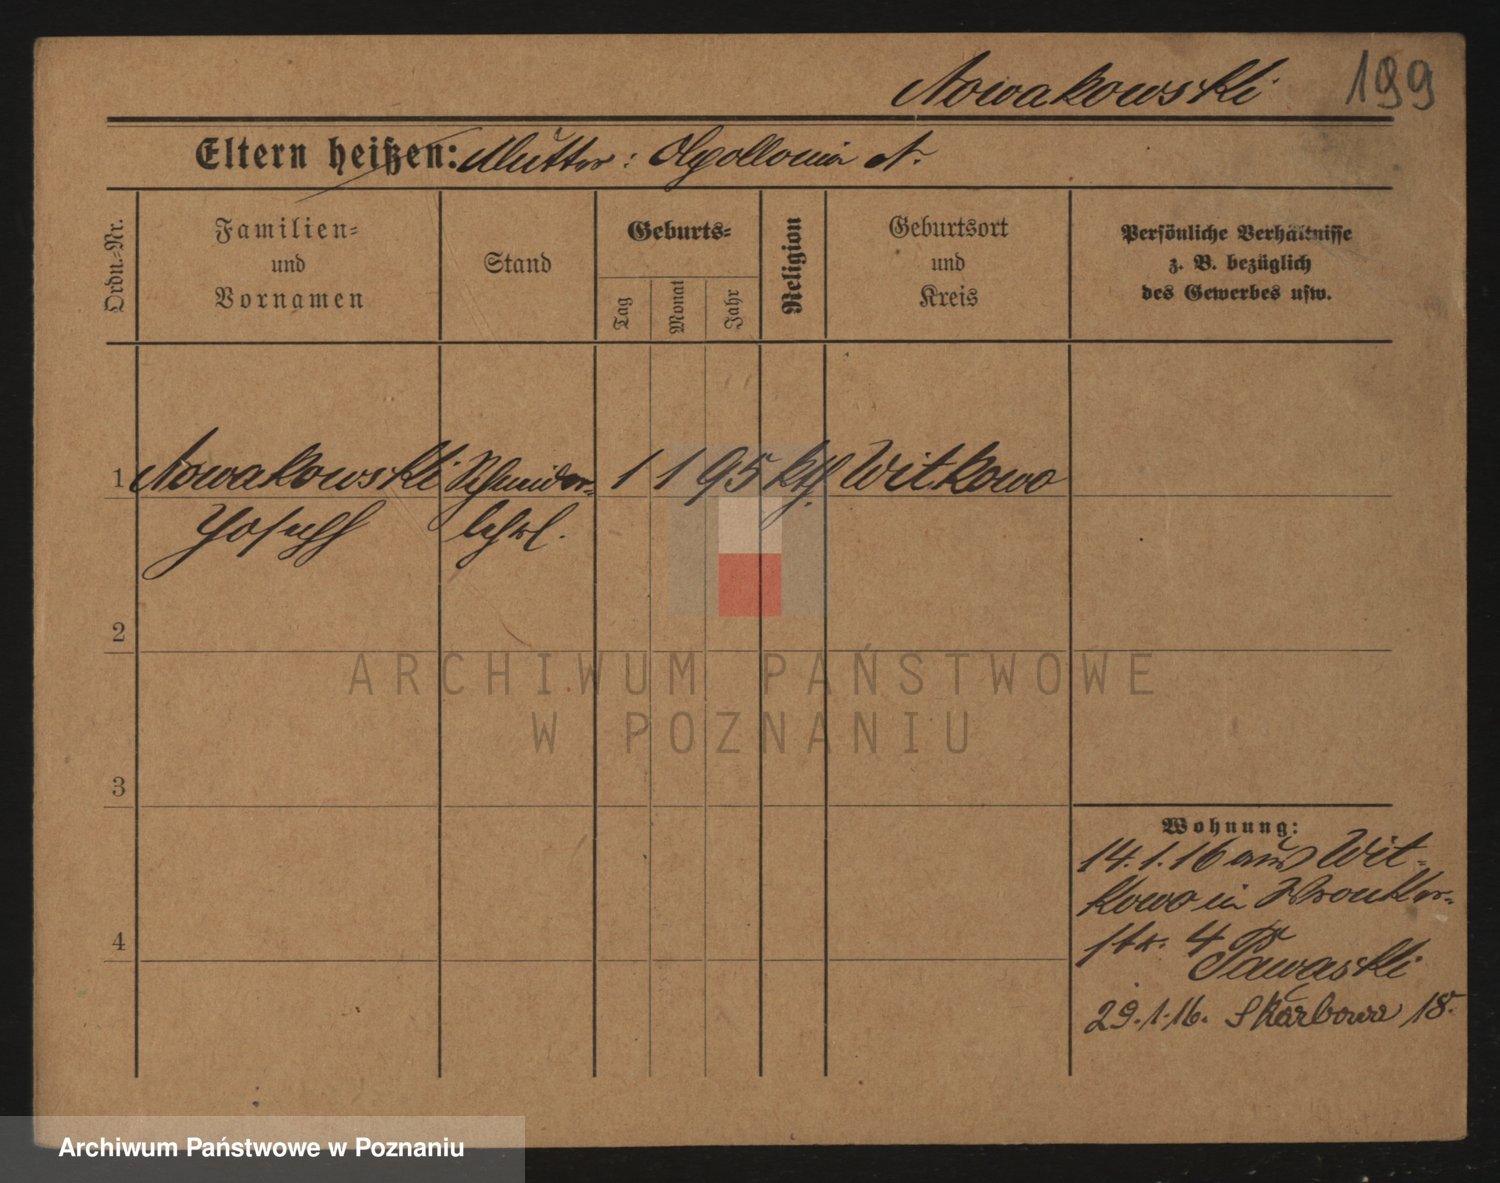 Nowakowski 199
Eltern heißen: Mutter: Apollonia N.
Ordn.-Nr.
Familien-
und
Vornamen
Stand
Geburts-
Tag
Monat
Jahr
Religion
Geburtsort
und
Kreis
Persönliche Verhältnisse
z. B. bezüglich
des Gewerbes usw.
1 Nowakowski Schneider- 1 1 95 kth. Witkowo
Joseph lehrl.
2
3
4
Wohnung:
14.1.16 aus Wit-
kowo in Wronker-
str. 4
29.1.16. Skarbowa 18.
ARCHIWUM PAŃSTWOWE
W POZNANIU
Archiwum Państwowe w Poznaniu